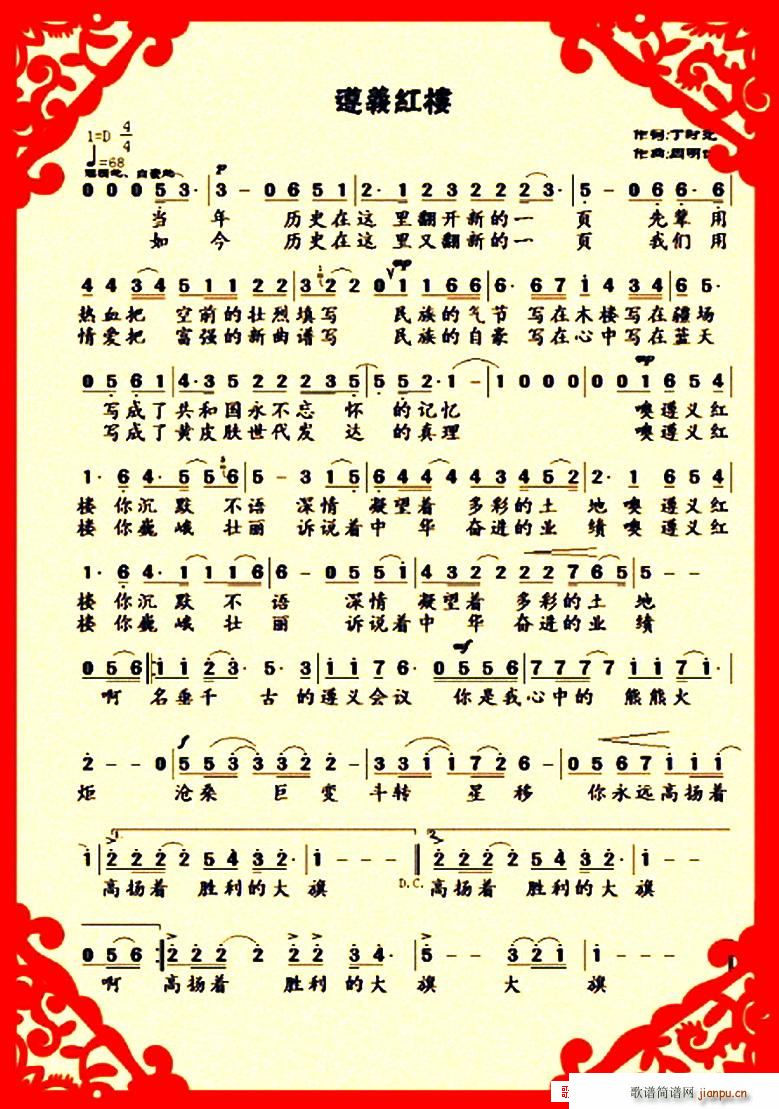 遵義紅樓
1=D 4/4
♩=68
作词:丁时光
作曲:周明
p
0 0 0 5 3· | 3 - 0 6 5 1 | 2· 1 2 3 2 2 2 3 | 5 - 0 6 6· 6
当 年 历史在这 里翻开新的一 頁 先辈用
如 今 历史在这 里又翻新的一 頁 我们用
mp
4 4 3 4 5 1 1 2 2 | 3 2 2 0 1 1 6 6 | 6· 6 7 1 4 3 4 | 6 5·
热血把 空前的壮烈填写 民族的气节 写在木楼写在疆场
情爱把 富强的新曲谱写 民族的自豪 写在心中写在蓝天
mp
0 5 6 1 | 4· 3 5 2 2 2 3 5 | 5 5 2· 1 - | 1 0 0 0 | 0 0 1 6 5 4
写成了共和国永不忘 怀 的记忆 噢遵义红
写成了黄皮肤世代发 达 的真理 噢遵义红
1· 6 4· 5 5 6 | 5 - 3 1 5 | 6 4 4 4 3 4 5 2 | 2· 1 6 5 4
楼 你沉 默 不语 深情 凝望着 多彩的土 地 噢遵义红
楼 你巍 峨 壮丽 诉说着中 华 奋进的业 绩 噢遵义红
1· 6 4· 1 1 1 6 | 6 - 0 5 5 1 | 4 3 2 2 2 2 7 6 5 | 5 - -
楼 你沉 默 不 语 深情 凝望着 多彩的土 地
楼 你巍 峨 壮 丽 诉说着中 华 奋进的业 绩
mf
0 5 6 ‖: 1 1 2 3· 5· | 1 1 7 6· 0 5 5 6 | 7 7 7 7 1 1 7 1·
啊 名垂千 古 的遵义会议 你是我心中的 熊熊火
f
2 - - 0 | 5 5 3 3 3 2 2 - | 3 3 1 1 7 2 6 - | 0 5 6 7 1 1 1
炬 沧桑 巨 变 斗转 星 移 你永远高扬着
1. 2.
1 | 2 2 2 2 5 4 3 2· | 1 - - - ‖ 2 2 2 2 5 4 3 2· | 1 - - -
高扬着 胜利的大 旗 D.C. 高扬着 胜利的大 旗
0 5 6 :‖ 2 2 2 2 2 2 3 4· | 5 - - 3 2 1 2 | 1 - - -
啊 高扬着 胜利的大 旗 大 旗
歌谱简谱网
jianpu.cn